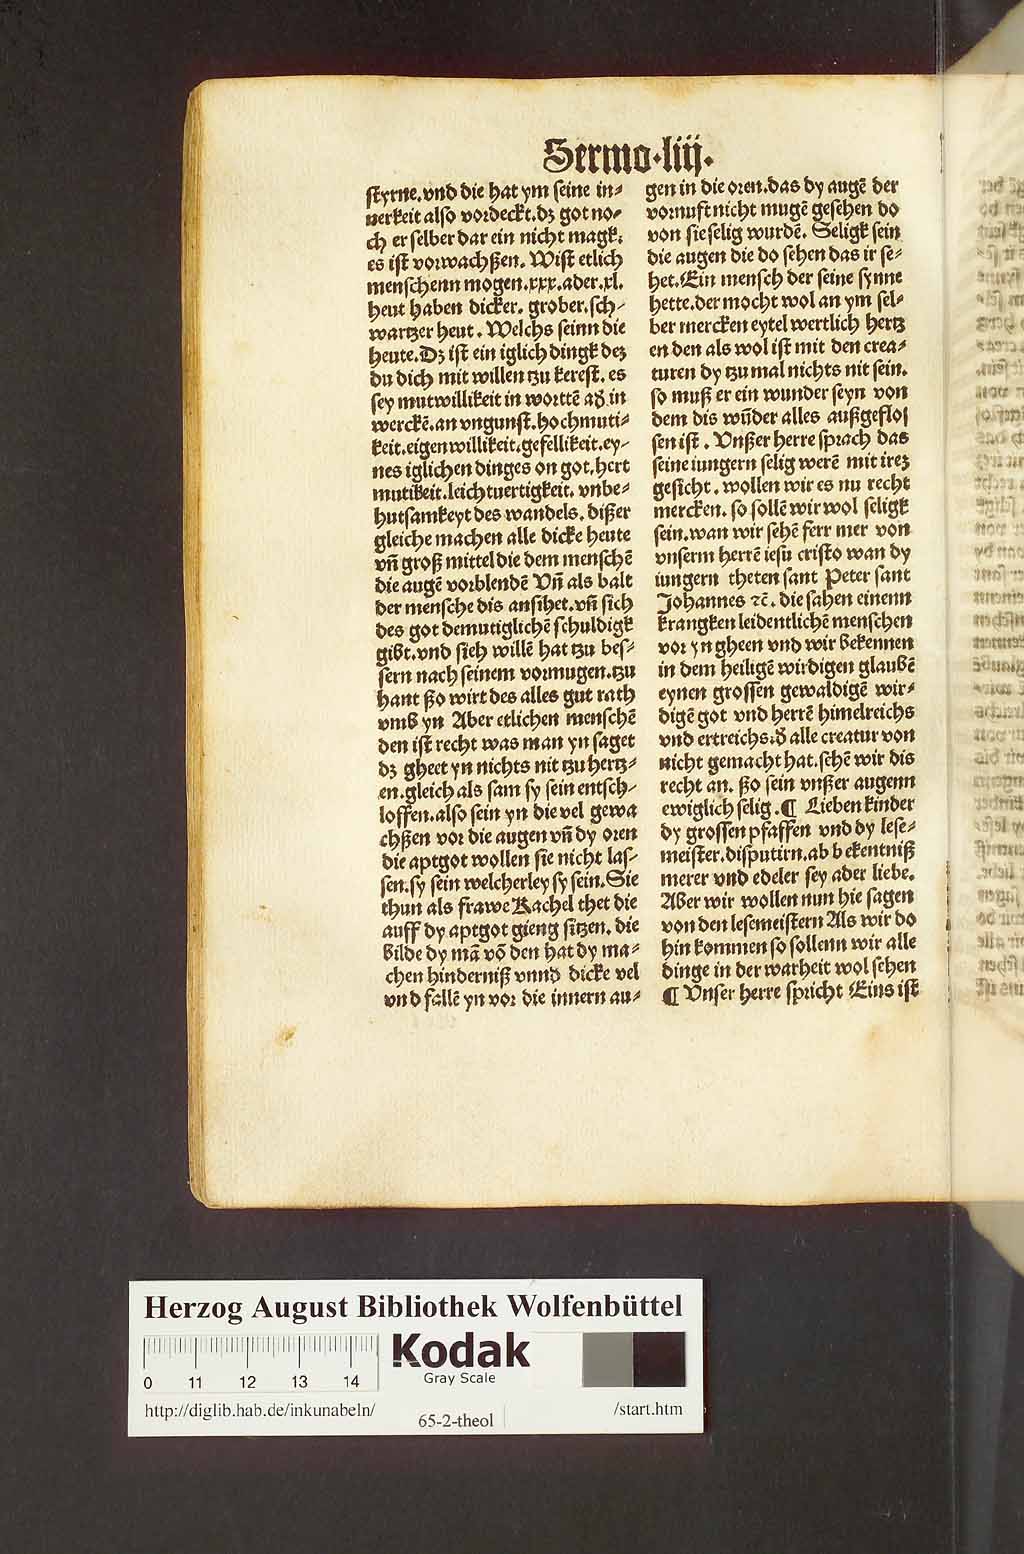 Sermo·liij.
styrne.vnd die hat ym seine in⸗
nerkeit also vordeckt.dz got no⸗
ch er selber dar ein nicht magk:
es ist vorwachßen. Wist etlich
menschenn mogen.xxx.ader.xl.
heut haben dicker. grober.sch⸗
wartzer heut. Welchs seinn die
heute.Dz ist ein iglich dingk dez
du dich mit willen tzu kerest. es
sey mutwillikeit in worttē ađ in
werckē.an vngunst.hochmuti⸗
keit.eigenwillikeit.gefellikeit.ey⸗
nes iglichen dinges on got.hert
mutikeit.leichtuertigkeit. vnbe⸗
hutsamkeyt des wandels. dißer
gleiche machen alle dicke heute
vn̄ groß mittel die dem menschē
die augē vorblendē Vn̄ als balt
der mensche dis ansihet.vn̄ sich
des got demutiglichē schuldigk
gibt.vnd sieh willē hat tzu bes⸗
sern nach seinem vormugen.tzu
hant ßo wirt des alles gut rath
vmb yn Aber etlichen menschē
den ist recht was man yn saget
dz gheet yn nichts nit tzu hertz⸗
en.gleich als sam sy sein entsch⸗
loffen.also sein yn die vel gewa
chßen vor die augen vn̄ dy oren
die aptgot wollen sie nicht las⸗
sen.sy sein welcherley sy sein.Sie
thun als frawe Rachel thet die
auff dy aptgot gieng sitzen. die
bilde dy mā vō den hat dy ma⸗
chen hinderniß vnnd dicke vel
vnd fallē yn vor die innern au⸗
gen in die oren.das dy augē der
vornuft nicht mugē gesehen do
von sie selig wurdē. Seligk sein
die augen die do sehen das ir se⸗
het.Ein mensch der seine synne
hette.der mocht wol an ym sel⸗
ber mercken eytel wertlich hertz
en den als wol ist mit den crea⸗
turen dy tzu mal nichts nit sein.
so muß er ein wunder seyn von
dem dis wūder alles außgeflos
sen ist. Vnßer herre sprach das
seine iungern selig werē mit irez
gesicht. wollen wir es nu recht
mercken. so sollē wir wol seligk
sein.wan wir sehē ferr mer von
vnserm herrē iesu cristo wan dy
iungern theten sant Peter sant
Johannes ⁊c̄. die sahen einenn
krangken leidentlichē menschen
vor yn gheen vnd wir bekennen
in dem heiligē wirdigen glaubē
eynen grossen gewaldigē wir⸗
digē got vnd herrē himelreichs
vnd ertreichs:đ alle creatur von
nicht gemacht hat.sehē wir dis
recht an. ßo sein vnßer augenn
ewiglich selig.¶ Lieben kinder
dy grossen pfaffen vnd dy lese⸗
meister.disputirn.ab bekentniß
merer vnd edeler sey ader liebe.
Aber wir wollen nun hie sagen
von den lesemeistern Als wir do
hin kommen so sollenn wir alle
dinge in der warheit wol sehen
¶ Vnser herre spricht Eins ist
Herzog August Bibliothek Wolfenbüttel
0 11 12 13 14
Kodak
Gray Scale
http://diglib.hab.de/inkunabeln/
65-2-theol
/start.htm